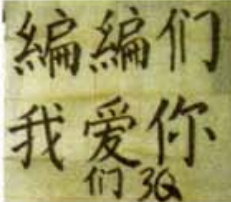 編編们
我爱你
们 3Q